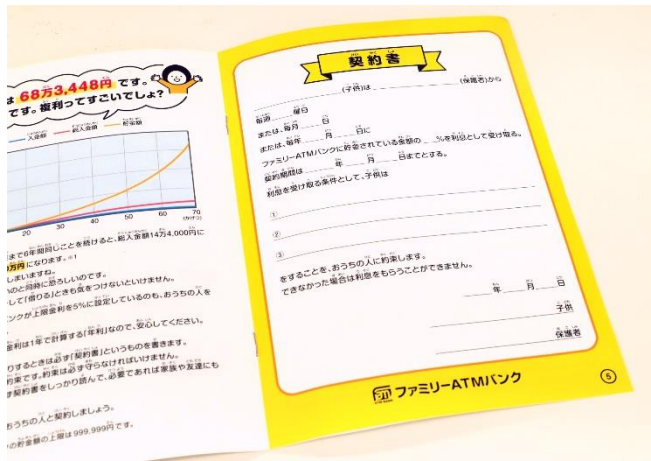 は 68万3,448円 です。
です。複利ってすごいでしょ?
入金額 総入金額 貯金額
20 30 40 50 60 70
(かげつ)
まで6年間同じことを続けると、総入金額14万4,000円に
万円になります。※1
しまいますね。
いのと同時に恐ろしいのです。
して「借りる」ときも気をつけないといけません。
ンクが上限金利を5%に設定しているのも、おうちの人を
金利は1年で計算する「年利」なので、安心してください。
りするときは必ず「契約書」というものを書きます。
約束です。約束は必ず守らなければいけません。
ず契約書をしっかり読んで、必要であれば家族や友達にも
おうちの人と契約しましょう。
の貯金額の上限は999,999円です。
契約書
(子供)は (保護者)から
毎週 曜日
または、毎月 日
または、毎年 月 日に
ファミリーATMバンクに貯金されている金額の %を利息として受け取る。
契約期間は 年 月 日までとする。
利息を受け取る条件として、子供は
①
②
③
をすることを、おうちの人に約束します。
できなかった場合は利息をもらうことができません。
年 月 日
子供
保護者
ファミリーATMバンク
5